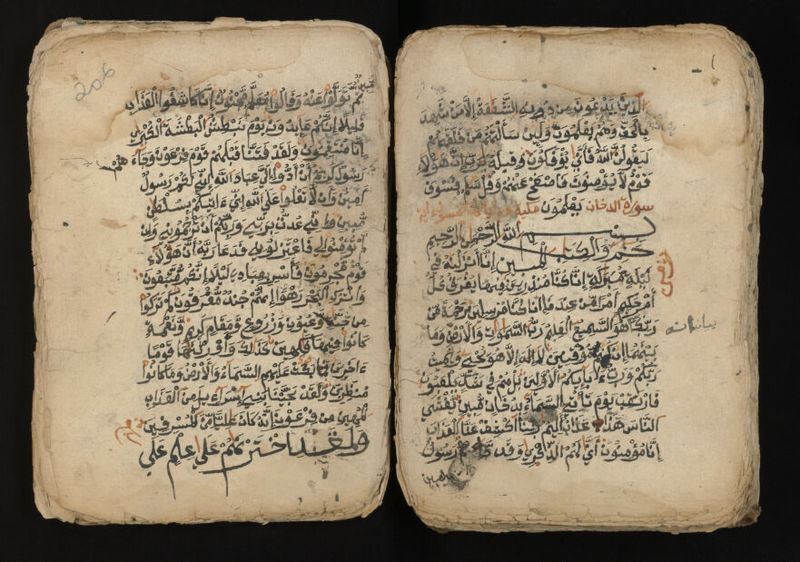 الذين يدعون من دونه الشفعة إلا من شهد
بالحق وهم يعلمون ولين سألتهم من خلقهم
ليقولن الله فأنى يؤفكون وقيله يرب إن هؤلاء
قوم لا يؤمنون فاصفح عنهم وقل سلم فسوف
سورة الدخان يعلمون مكية
بسم الله الرحمن الرحيم
حم والكتب المبين إنا أنزلنه في
ليلة مبركة إنا كنا منذرين فيها يفرق كل
أمر حكيم أمرا من عندنا إنا كنا مرسلين رحمة من
ربك إنه هو السميع العليم رب السموت والأرض وما
بينهما إن كنتم موقنين لا إله إلا هو يحي ويميت
ربكم ورب ءابايكم الأولين بل هم في شك يلعبون
فارتقب يوم تأتي السماء بدخان مبين يغشى
الناس هذا عذاب أليم ربنا اكشف عنا العذاب
إنا مؤمنون أنى لهم الذكرى وقد جاءهم رسول
مبين
206
ثم تولوا عنه وقالوا معلم مجنون إنا كاشفوا العذاب
قليلا إنكم عايدون يوم نبطش البطشة الكبرى
إنا منتقمون ولقد فتنا قبلهم قوم فرعون وجاءهم
رسول كريم أن أدوا إلي عباد الله إني لكم رسول
أمين وأن لا تعلوا على الله إني ءاتيكم بسلطن
مبين وإني عذت بربي وربكم أن ترجمون وإن
لم تؤمنوا لي فاعتزلون فدعا ربه أن هؤلاء
قوم مجرمون فأسر بعبادي ليلا إنكم متبعون
واترك البحر رهوا إنهم جند مغرقون كم تركوا
من جنت وعيون وزروع ومقام كريم ونعمة
كانوا فيها فكهين كذلك وأورثنها قوما
ءاخرين فما بكت عليهم السماء والأرض وما كانوا
منظرين ولقد نجينا بني إسراءيل من العذاب
المهين من فرعون إنه كان عاليا من المسرفين
ولقد اخترنهم على علم على